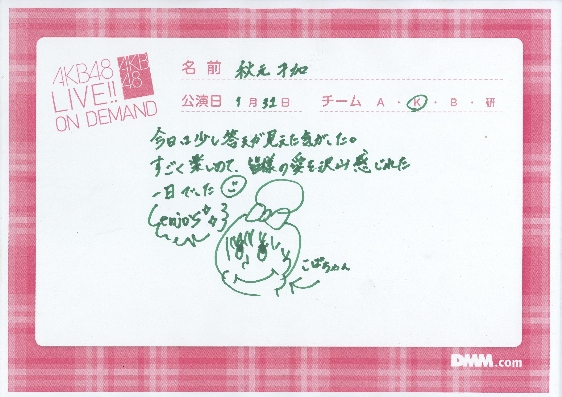 AKB48
LIVE!!
ON DEMAND
AKB
48
名前 秋元才加
公演日 1月31日 チーム A・K・B・研
今日は少し答えが見えた気がした。
すごく楽しめて、皆様の愛を沢山感じれた
一日でした
enjoy
こばちゃん
DMM.com